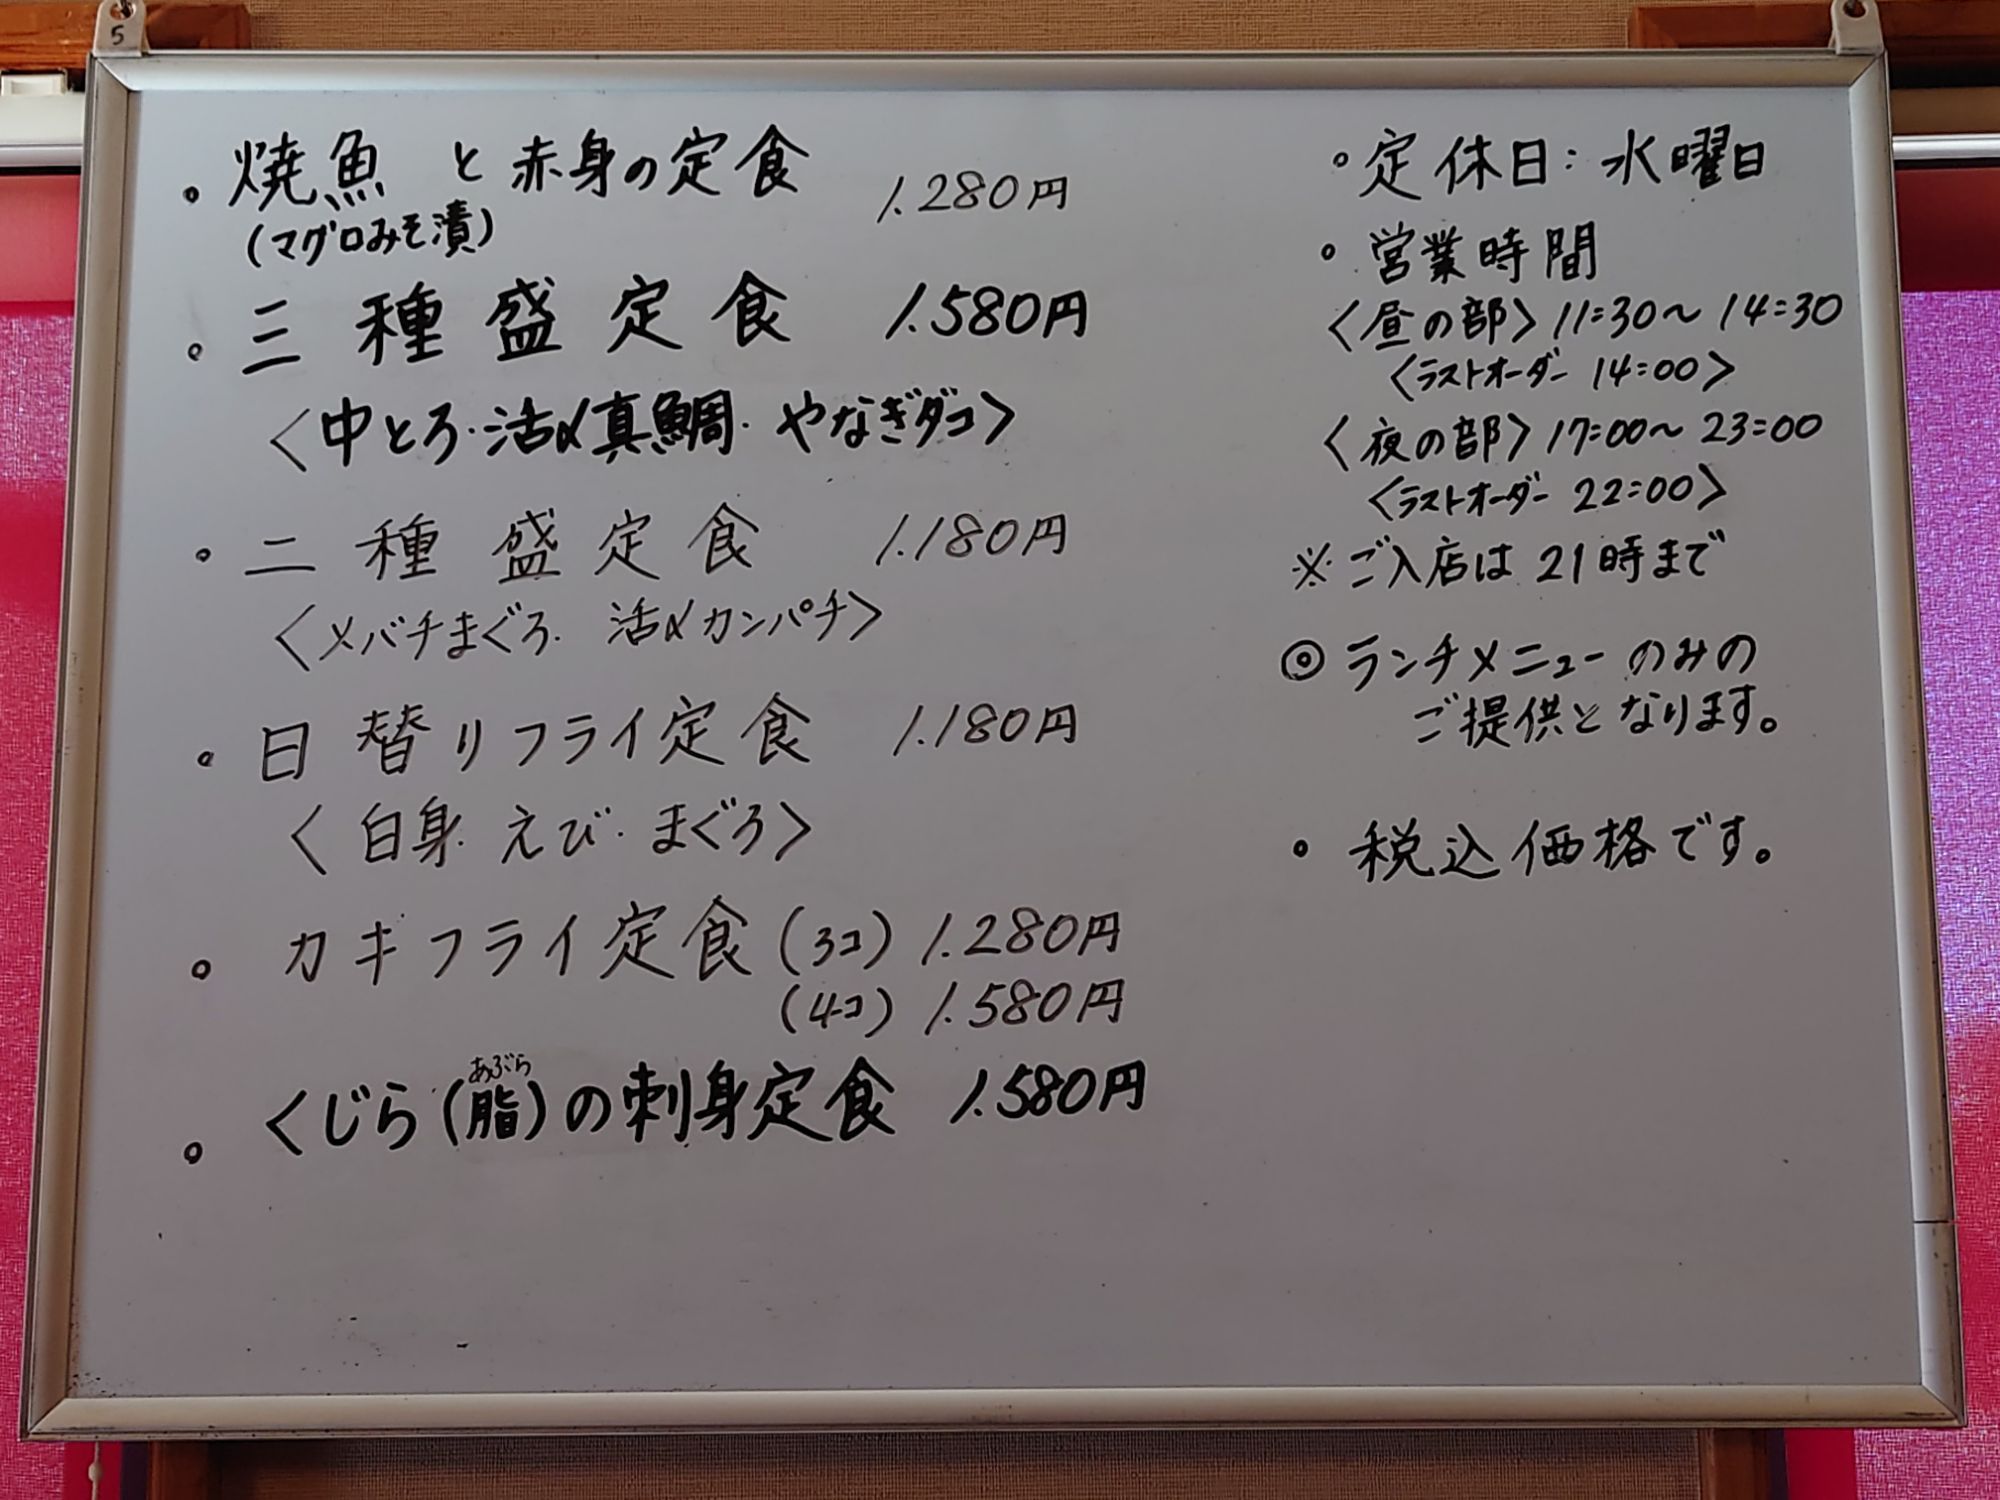 5
・焼魚と赤身の定食 1.280円
(マグロみそ漬)
・三種盛定食 1.580円
〈中とろ・活〆真鯛・やなぎダコ〉
・二種盛定食 1.180円
〈メバチまぐろ・活〆カンパチ〉
・日替りフライ定食 1.180円
〈白身・えび・まぐろ〉
・カキフライ定食(3コ) 1.280円
(4コ) 1.580円
あぶら
・くじら(脂)の刺身定食 1.580円
・定休日:水曜日
・営業時間
〈昼の部〉11:30〜14:30
〈ラストオーダー 14:00〉
〈夜の部〉17:00〜23:00
〈ラストオーダー 22:00〉
※ご入店は21時まで
◎ランチメニューのみの
ご提供となります。
・税込価格です。